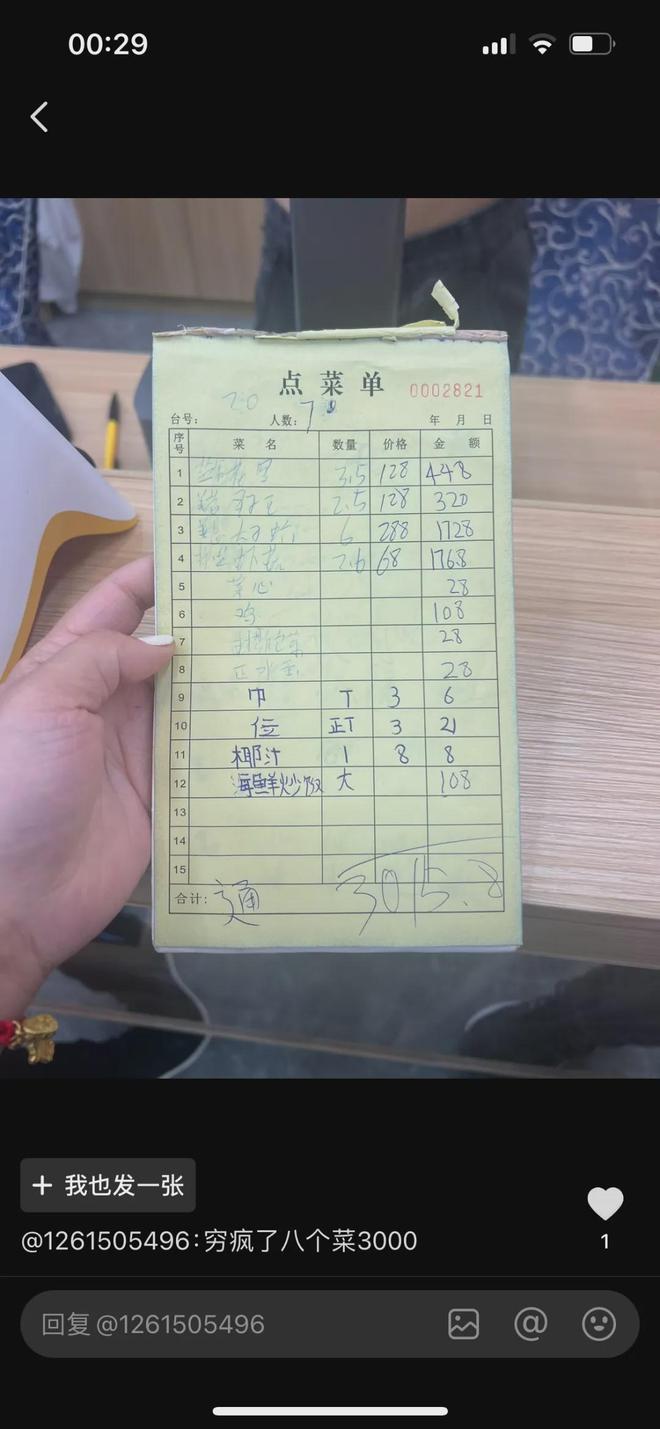 00:29
点菜单 0002821
20
台号: 人数: 7 年 月 日
序号 菜名 数量 价格 金额
1 3.5 128 448
2 2.5 128 320
3 6 288 1728
4 2.6 68 176.8
5 菜心 28
6 鸡 108
7 28
8 28
9 巾 T 3 6
10 位 正T 3 21
11 椰汁 1 8 8
12 海鲜炒饭 大 108
13
14
15
合计: 通 3015.8
+ 我也发一张
@1261505496:穷疯了八个菜3000
1
回复 @1261505496